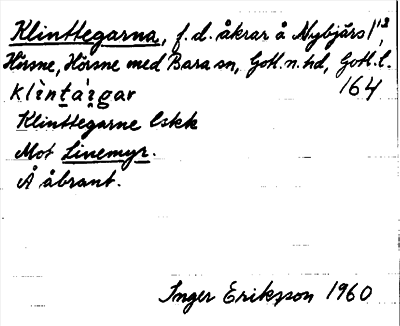 Klinttegarna, f.d. åkrar å Nybjärs 1¹³,
Hörsne, Hörsne med Bara sn, Gotl.n.hd, Gotl.l.
klìntàigar 164
Klinttegarne lskk
Mot Linemyr.
Å åbrant.
Inger Eriksson 1960